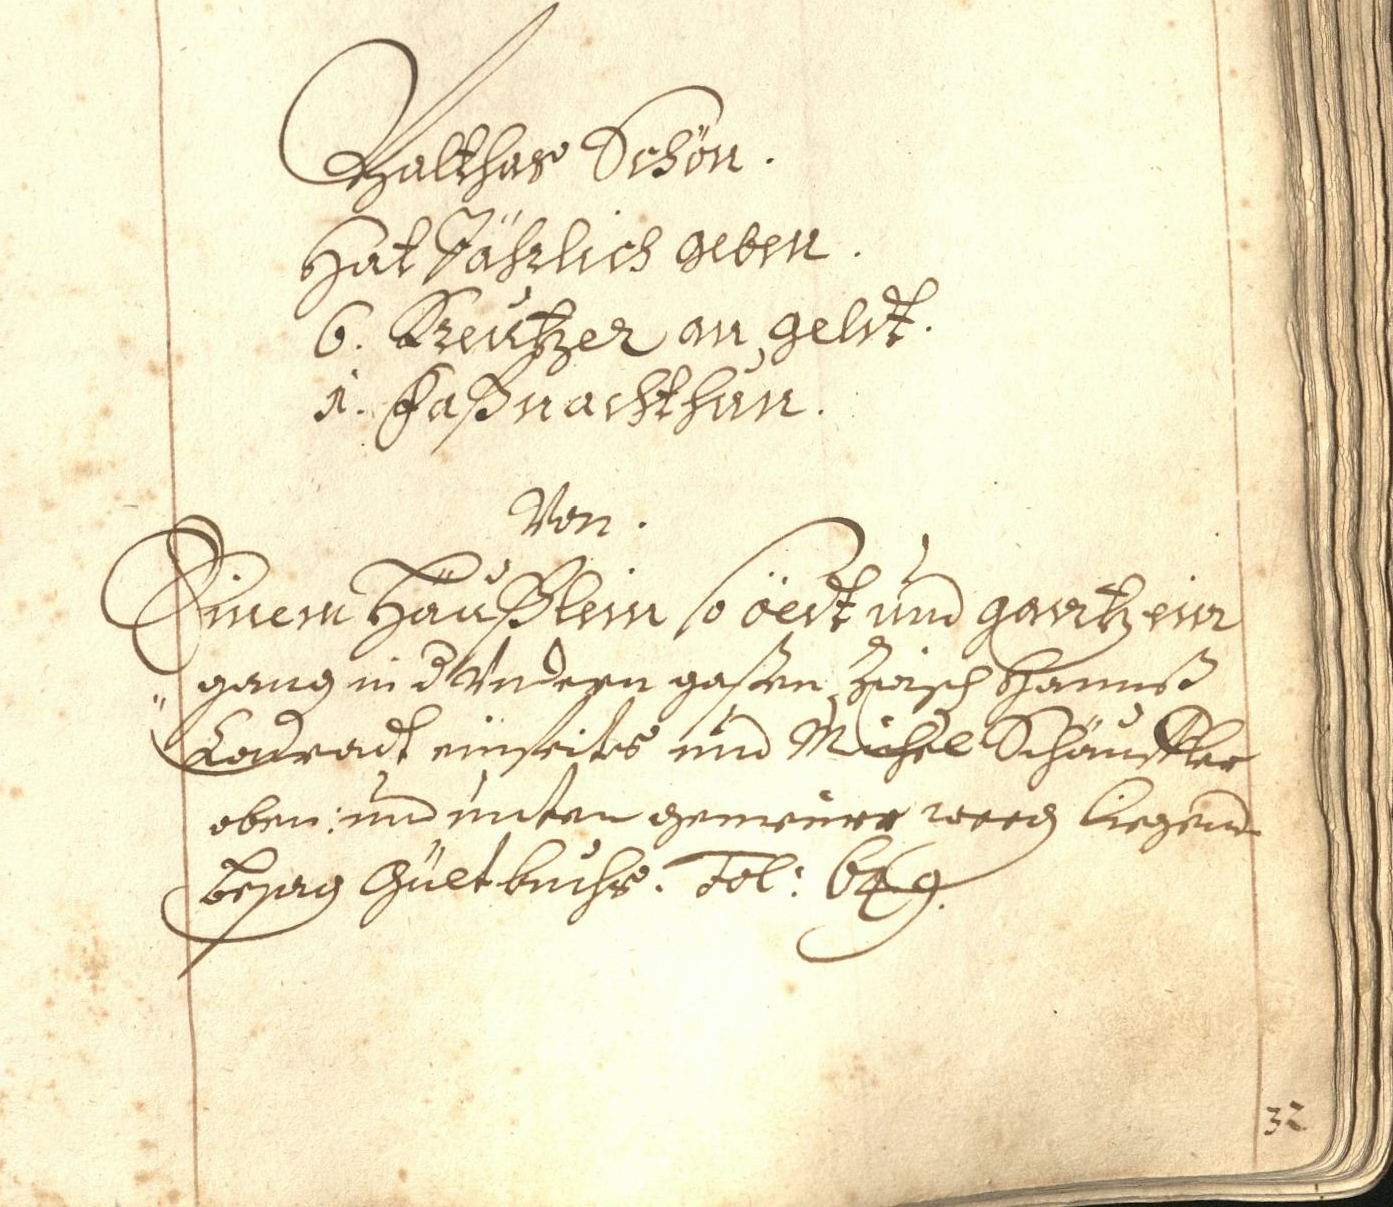 Balthas Schön.
Hat Jährlich geben.
6. Kreutzer an geldt.
1. Faßnachthun.
Von.
Einem Häußlein so öedt und gantz ein
gang in d Undern gaßen zwisch Hannß
Conradt einseits und Michel Schäuffler
oben: und unten gemeiner weeg liegend
besag Gültbuchs. Fol: 649.
32